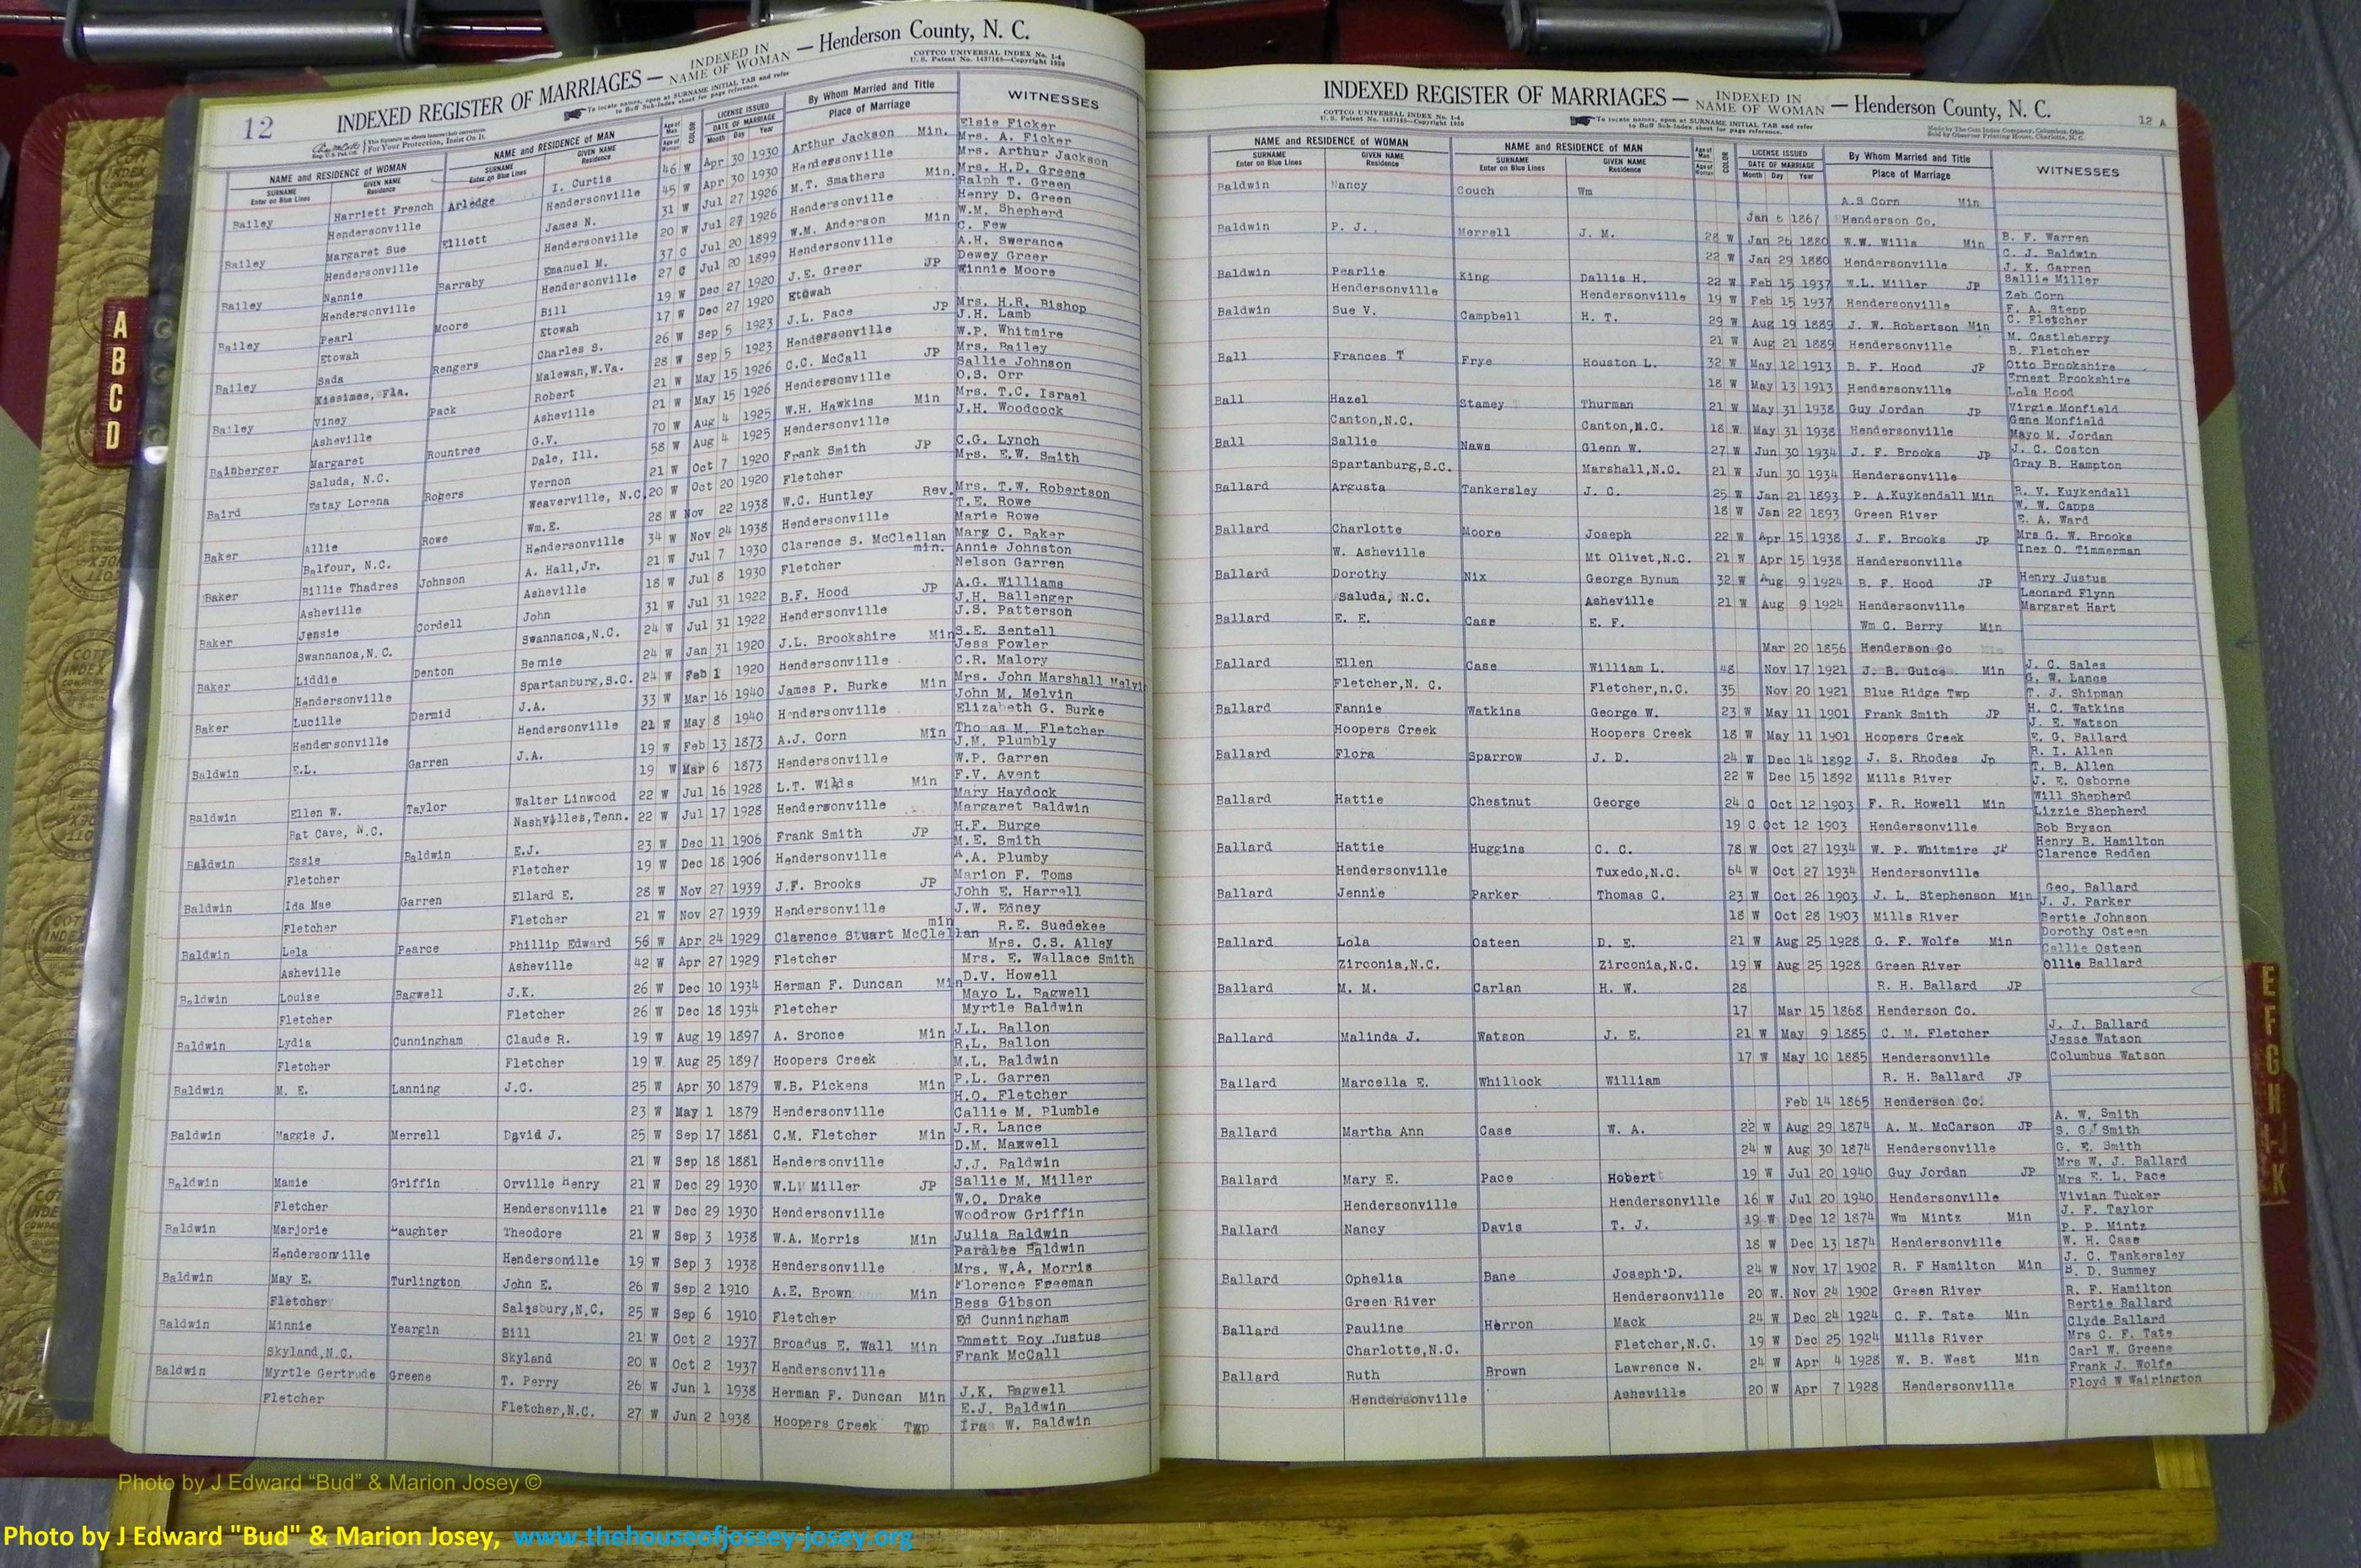 12
INDEXED REGISTER OF MARRIAGES — INDEXED IN NAME OF WOMAN — Henderson County, N. C.
COTTCO UNIVERSAL INDEX No. 1-4
U. S. Patent No. 1437165—Copyright 1950
To locate names, open at SURNAME INITIAL TAB and refer
to Buff Sub-Index sheet for page reference.
For Your Protection, Insist On It.
NAME and RESIDENCE OF WOMAN NAME and RESIDENCE OF MAN Age of Man Age of Woman COLOR LICENSE ISSUED DATE OF MARRIAGE By Whom Married and Title Place of Marriage WITNESSES
SURNAME Enter on Blue Lines GIVEN NAME Residence SURNAME Enter on Blue Lines GIVEN NAME Residence Month Day Year
Elsie Ficker
Bailey Harriett French Arledge I. Curtis 46 W Apr 30 1930 Arthur Jackson Min. Mrs. A. Ficker
Hendersonville Hendersonville 45 W Apr 30 1930 Hendersonville Mrs. Arthur Jackson
Bailey Margaret Sue Elliett James N. 31 W Jul 27 1926 M.T. Smathers Min. Mrs. H.D. Greene
Ralph T. Green
Hendersonville Hendersonville 20 W Jul 27 1926 Hendersonville Henry D. Green
Bailey Nannie Barraby Emanuel M. 37 C Jul 20 1899 W.M. Anderson Min W.M. Shepherd
C. Few
Hendersonville Hendersonville 27 C Jul 20 1899 Hendersonville A.H. Swerance
Bailey Pearl Moore Bill 19 W Dec 27 1920 J.E. Greer JP Dewey Greer
Etowah Etowah 17 W Dec 27 1920 Etowah Winnie Moore
Bailey Sada Rengers Charles S. 26 W Sep 5 1923 J.L. Pace JP Mrs. H.R. Bishop
J.H. Lamb
Kissimee, Fla. Malewan, W.Va. 28 W Sep 5 1923 Hendersonville W.P. Whitmire
Bailey Viney Pack Robert 21 W May 15 1926 C.C. McCall JP Mrs. Bailey
Sallie Johnson
Asheville Asheville 21 W May 15 1926 Hendersonville O.S. Orr
Bainberger Margaret Rountree G.V. 70 W Aug 4 1925 W.H. Hawkins Min Mrs. T.C. Israel
Saluda, N.C. Dale, Ill. 58 W Aug 4 1925 Hendersonville J.H. Woodcock
Baird Estay Lorena Rogers Vernon 21 W Oct 7 1920 Frank Smith JP C.G. Lynch
Weaverville, N.C. 20 W Oct 20 1920 Fletcher Mrs. E.W. Smith
Baker Allie Rowe Wm.E. 28 W Nov 22 1938 W.C. Huntley Rev. Mrs. T.W. Robertson
T.E. Rowe
Balfour, N.C. Hendersonville 34 W Nov 24 1938 Hendersonville Marie Rowe
Baker Billie Thadres Johnson A. Hall, Jr. 21 W Jul 7 1930 Clarence S. McClellan min. Marg C. Baker
Annie Johnston
Asheville Asheville 18 W Jul 8 1930 Fletcher Nelson Garren
Baker Jensie Cordell John 31 W Jul 31 1922 B.F. Hood JP A.G. Williams
J.H. Ballenger
Swannanoa, N.C. Swannanoa, N.C. 24 W Jul 31 1922 Hendersonville J.S. Patterson
Baker Liddie Denton Bernie 24 W Jan 31 1920 J.L. Brookshire Min S.E. Sentell
Jess Fowler
Hendersonville Spartanburg, S.C. 24 W Feb 1 1920 Hendersonville C.R. Malory
Baker Lucille Dermid J.A. 33 W Mar 16 1940 James P. Burke Min Mrs. John Marshall Melvi
John M. Melvin
Hendersonville Hendersonville 21 W May 8 1940 Hendersonville Elizabeth G. Burke
Baldwin E.L. Garren J.A. 19 W Feb 13 1873 A.J. Corn Min Thomas M. Fletcher
J.M. Plumbly
19 W Mar 6 1873 Hendersonville W.P. Garren
Baldwin Ellen W. Taylor Walter Linwood 22 W Jul 16 1928 L.T. Wilds Min F.V. Avent
Mary Haydock
Bat Cave, N.C. Nashvilles, Tenn. 22 W Jul 17 1928 Hendersonville Margaret Baldwin
Baldwin Essie Baldwin E.J. 23 W Dec 11 1906 Frank Smith JP H.F. Burge
M.E. Smith
Fletcher Fletcher 19 W Dec 18 1906 Hendersonville A.A. Plumby
Baldwin Ida Mae Garren Ellard E. 28 W Nov 27 1939 J.F. Brooks JP Marion F. Toms
John E. Harrell
Fletcher Fletcher 21 W Nov 27 1939 Hendersonville J.W. Edney
Baldwin Lela Pearce Phillip Edward 56 W Apr 24 1929 Clarence Stuart McClellan min R.E. Suedekee
Mrs. C.S. Alley
Asheville Asheville 42 W Apr 27 1929 Fletcher Mrs. E. Wallace Smith
Baldwin Louise Bagwell J.K. 26 W Dec 10 1934 Herman F. Duncan Min D.V. Howell
Mayo L. Bagwell
Fletcher Fletcher 26 W Dec 18 1934 Fletcher Myrtle Baldwin
Baldwin Lydia Cunningham Claude R. 19 W Aug 19 1897 A. Sronce Min J.L. Ballon
R.L. Ballon
Fletcher Fletcher 19 W Aug 25 1897 Hoopers Creek M.L. Baldwin
Baldwin M. E. Lanning J.C. 25 W Apr 30 1879 W.B. Pickens Min P.L. Garren
H.O. Fletcher
23 W May 1 1879 Hendersonville Callie M. Plumble
Baldwin Maggie J. Merrell David J. 25 W Sep 17 1881 C.M. Fletcher Min J.R. Lance
D.M. Maxwell
21 W Sep 18 1881 Hendersonville J.J. Baldwin
Baldwin Mamie Griffin Orville Henry 21 W Dec 29 1930 W.L. Miller JP Sallie M. Miller
W.O. Drake
Fletcher Hendersonville 21 W Dec 29 1930 Hendersonville Woodrow Griffin
Baldwin Marjorie Laughter Theodore 21 W Sep 3 1938 W.A. Morris Min Julia Baldwin
Paralee Baldwin
Hendersonville Hendersonville 19 W Sep 3 1938 Hendersonville Mrs. W.A. Morris
Baldwin May E. Turlington John E. 26 W Sep 2 1910 A.E. Brown Min Florence Freeman
Bess Gibson
Fletcher Salisbury, N.C. 25 W Sep 6 1910 Fletcher Ed Cunningham
Baldwin Minnie Yeargin Bill 21 W Oct 2 1937 Broadus E. Wall Min Emmett Roy Justus
Skyland, N.C. Skyland 20 W Oct 2 1937 Hendersonville Frank McCall
Baldwin Myrtle Gertrude Greene T. Perry 26 W Jun 1 1938 Herman F. Duncan Min J.K. Bagwell
E.J. Baldwin
Fletcher Fletcher, N.C. 27 W Jun 2 1938 Hoopers Creek Twp Ira W. Baldwin
INDEXED REGISTER OF MARRIAGES — INDEXED IN NAME OF WOMAN — Henderson County, N. C.
12 A
COTTCO UNIVERSAL INDEX No. 1-4
U. S. Patent No. 1437165—Copyright 1950
To locate names, open at SURNAME INITIAL TAB and refer
to Buff Sub-Index sheet for page reference.
Made by The Cott Index Company, Columbus, Ohio
Sold by Observer Printing House, Charlotte, N. C.
NAME and RESIDENCE OF WOMAN NAME and RESIDENCE OF MAN Age of Man Age of Woman COLOR LICENSE ISSUED DATE OF MARRIAGE By Whom Married and Title Place of Marriage WITNESSES
SURNAME Enter on Blue Lines GIVEN NAME Residence SURNAME Enter on Blue Lines GIVEN NAME Residence Month Day Year
Baldwin Nancy Couch Wm A.S Corn Min
Jan 6 1867 Henderson Co.
Baldwin P. J. Merrell J. M. 28 W Jan 26 1880 W.W. Wills Min B. F. Warren
C. J. Baldwin
22 W Jan 29 1880 Hendersonville J. K. Garren
Baldwin Pearlie King Dallis H. 22 W Feb 15 1937 W.L. Miller JP Sallie Miller
Zeb Corn
Hendersonville Hendersonville 19 W Feb 15 1937 Hendersonville F. A. Stepp
Baldwin Sue V. Campbell H. T. 29 W Aug 19 1889 J. W. Robertson Min C. Fletcher
M. Castleberry
21 W Aug 21 1889 Hendersonville B. Fletcher
Ball Frances T Frye Houston L. 32 W May 12 1913 B. F. Hood JP Otto Brookshire
Ernest Brookshire
18 W May 13 1913 Hendersonville Lola Hood
Ball Hazel Stamey Thurman 21 W May 31 1938 Guy Jordan JP Virgie Monfield
Gene Monfield
Canton, N.C. Canton, N.C. 18 W May 31 1938 Hendersonville Mayo M. Jordan
Ball Sallie Naws Glenn W. 27 W Jun 30 1934 J. F. Brooks JP J. C. Coston
Spartanburg, S.C. Marshall, N.C. 21 W Jun 30 1934 Hendersonville Gray B. Hampton
Ballard Argusta Tankersley J. C. 25 W Jan 21 1893 P. A. Kuykendall Min R. V. Kuykendall
W. W. Capps
18 W Jan 22 1893 Green River E. A. Ward
Ballard Charlotte Moore Joseph 22 W Apr 15 1938 J. F. Brooks JP Mrs G. W. Brooks
W. Asheville Mt Olivet, N.C. 21 W Apr 15 1938 Hendersonville Inez O. Timmerman
Ballard Dorothy Nix George Bynum 32 W Aug 9 1924 B. F. Hood JP Henry Justus
Leonard Flynn
Saluda, N.C. Asheville 21 W Aug 9 1924 Hendersonville Margaret Hart
Ballard E. E. Case E. F. Wm C. Berry Min
Mar 20 1856 Henderson Co
Ballard Ellen Case William L. 48 Nov 17 1921 J. B. Guice Min J. C. Sales
G. W. Lance
Fletcher, N. C. Fletcher, n.C. 35 Nov 20 1921 Blue Ridge Twp T. J. Shipman
Ballard Fannie Watkins George W. 23 W May 11 1901 Frank Smith JP H. C. Watkins
J. E. Watson
Hoopers Creek Hoopers Creek 18 W May 11 1901 Hoopers Creek E. G. Ballard
Ballard Flora Sparrow J. D. 24 W Dec 14 1892 J. S. Rhodes Jp R. I. Allen
T. B. Allen
22 W Dec 15 1892 Mills River J. E. Osborne
Ballard Hattie Chestnut George 24 C Oct 12 1903 F. R. Howell Min Will Shepherd
Lizzie Shepherd
19 C Oct 12 1903 Hendersonville Bob Bryson
Ballard Hattie Huggins C. C. 78 W Oct 27 1934 W. P. Whitmire JP Henry B. Hamilton
Clarence Redden
Hendersonville Tuxedo, N.C. 64 W Oct 27 1934 Hendersonville
Ballard Jennie Parker Thomas C. 23 W Oct 26 1903 J. L. Stephenson Min Geo. Ballard
J. J. Parker
18 W Oct 28 1903 Mills River Bertie Johnson
Ballard Lola Osteen D. E. 21 W Aug 25 1928 G. F. Wolfe Min Dorothy Osteen
Callie Osteen
Zirconia, N.C. Zirconia, N.C. 19 W Aug 25 1928 Green River Ollie Ballard
Ballard M. M. Carlan H. W. 28 R. H. Ballard JP
17 Mar 15 1868 Henderson Co.
Ballard Malinda J. Watson J. E. 21 W May 9 1885 C. M. Fletcher J. J. Ballard
Jesse Watson
17 W May 10 1885 Hendersonville Columbus Watson
Ballard Marcella E. Whillock William R. H. Ballard JP
Feb 14 1865 Henderson Co.
Ballard Martha Ann Case W. A. 22 W Aug 29 1874 A. M. McCarson JP A. W. Smith
S. G. Smith
24 W Aug 30 1874 Hendersonville G. E. Smith
Ballard Mary E. Pace Hobert 19 W Jul 20 1940 Guy Jordan JP Mrs W. J. Ballard
Mrs E. L. Pace
Hendersonville Hendersonville 16 W Jul 20 1940 Hendersonville Vivian Tucker
Ballard Nancy Davis T. J. 19 W Dec 12 1874 Wm Mintz Min J. F. Taylor
P. P. Mintz
18 W Dec 13 1874 Hendersonville W. H. Case
Ballard Ophelia Bane Joseph D. 24 W Nov 17 1902 R. F Hamilton Min J. C. Tankersley
B. D. Summey
Green River Hendersonville 20 W. Nov 24 1902 Green River R. F. Hamilton
Ballard Pauline Herron Mack 24 W Dec 24 1924 C. F. Tate Min Bertie Ballard
Clyde Ballard
Charlotte, N.C. Fletcher, N.C. 19 W Dec 25 1924 Mills River Mrs C. F. Tate
Ballard Ruth Brown Lawrence N. 24 W Apr 4 1928 W. B. West Min Carl W. Greene
Frank J. Wolfe
Hendersonville Asheville 20 W Apr 7 1928 Hendersonville Floyd W Wairington
A
B
C
D
E
F
G
H
I-J
K
Photo by J Edward “Bud” & Marion Josey ©
Photo by J Edward "Bud" & Marion Josey, www.thehouseofjossey-josey.org